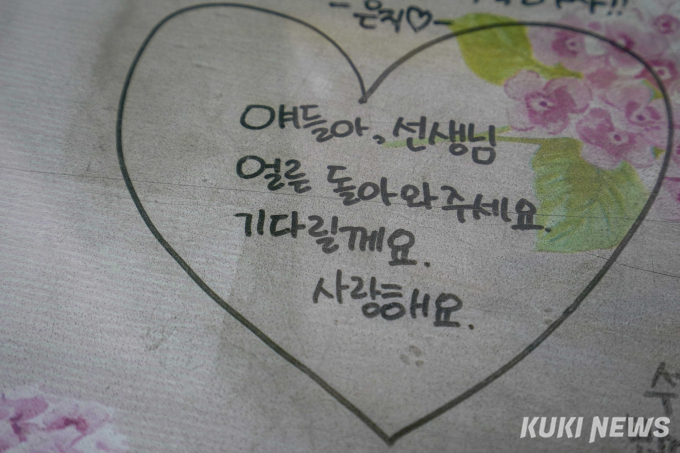 -은직♡-
얘들아, 선생님
얼른 돌아와주세요.
기다릴께요.
사랑해요.
KUKI NEWS